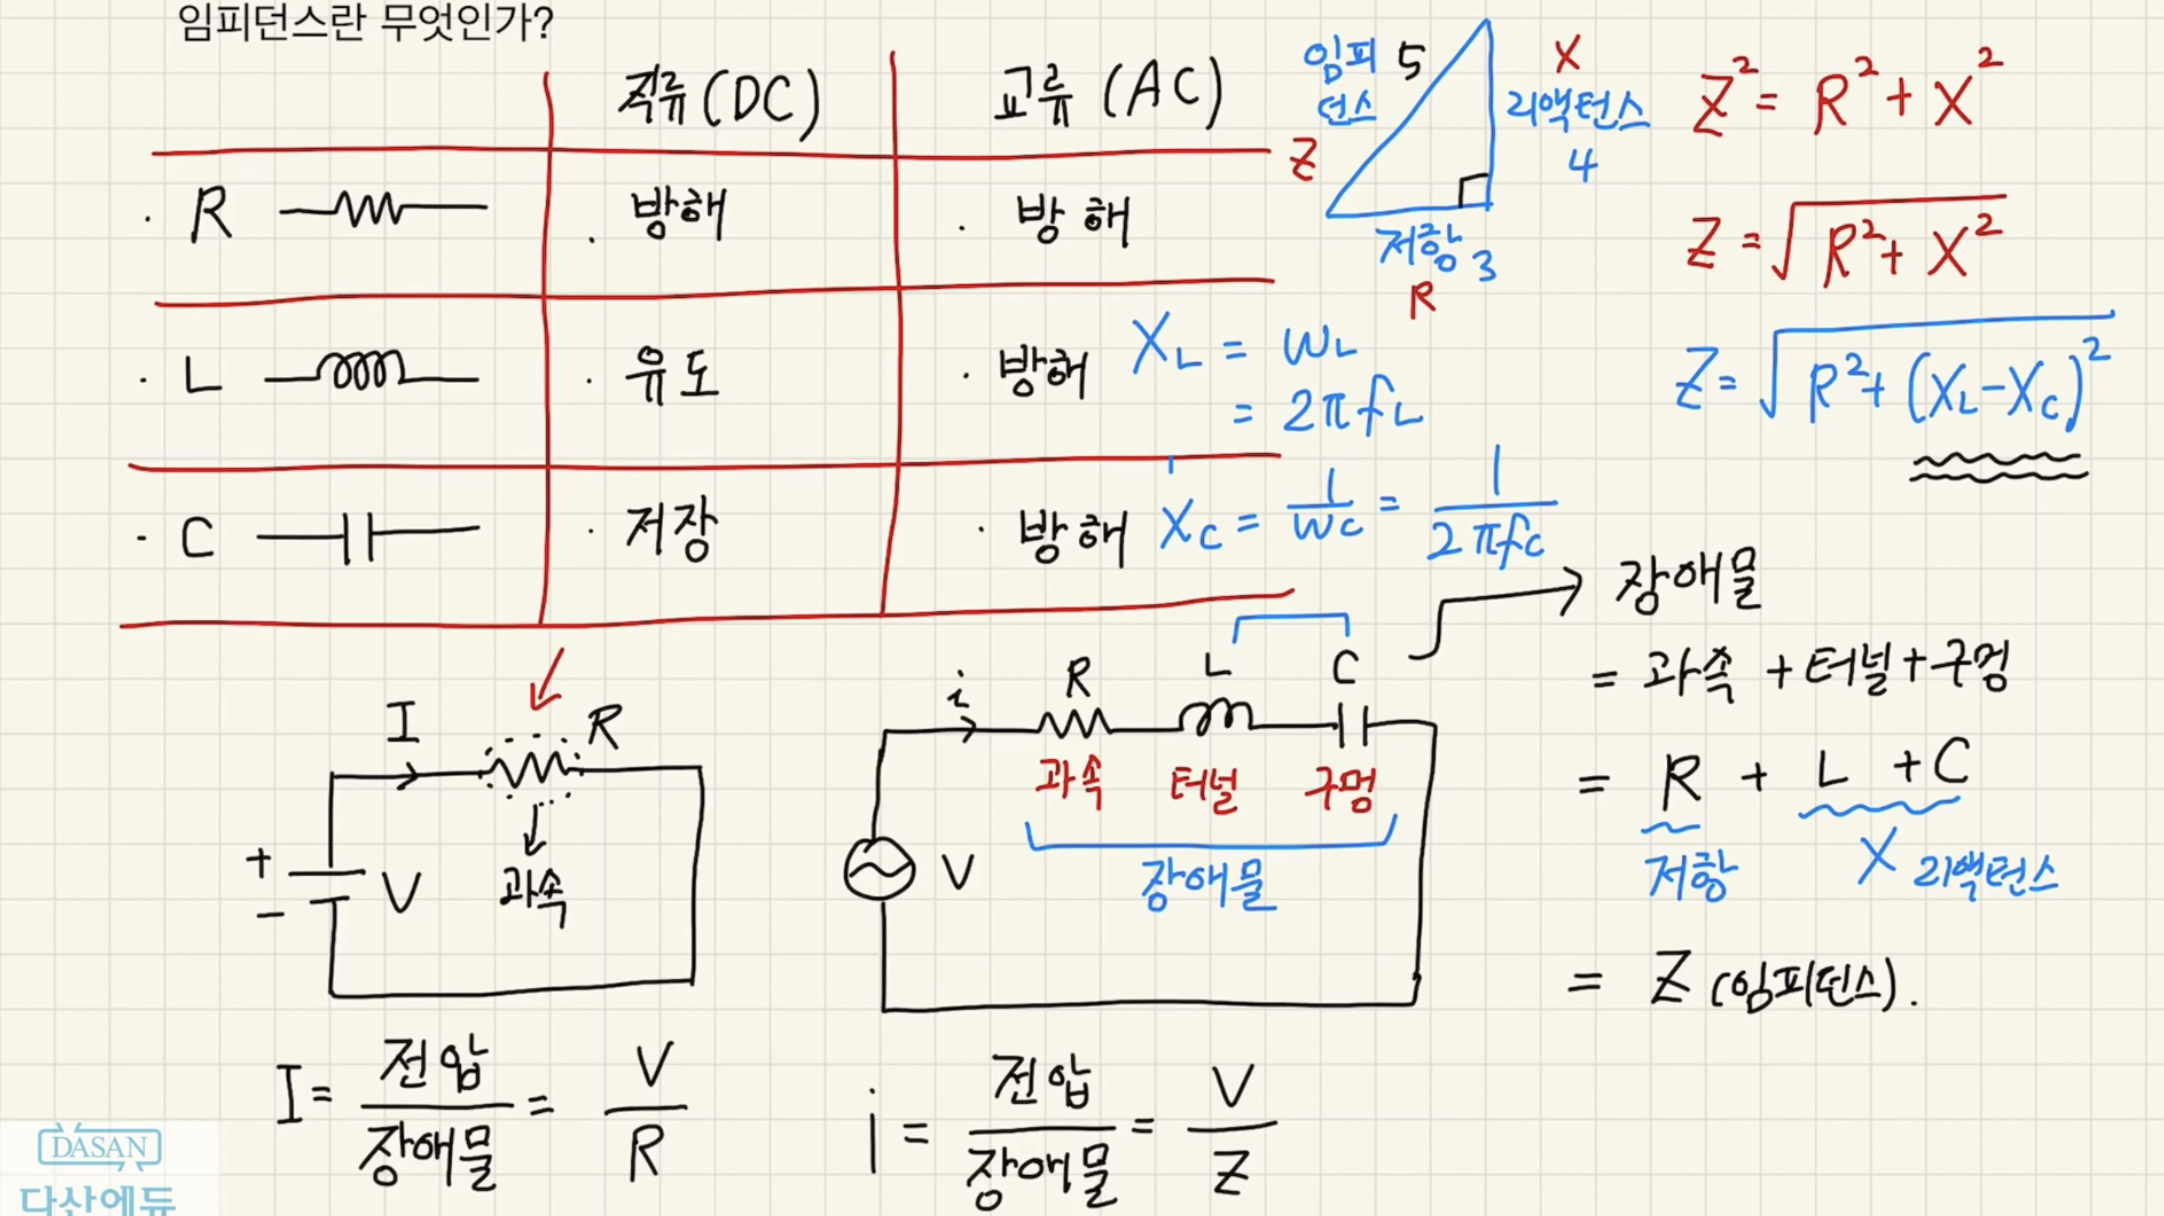 임피던스란 무엇인가?
직류(DC) 교류(AC)
· R · 방해 · 방해
· L · 유도 · 방해
X_L = wL
= 2πfL
· C · 저장 · 방해
X_C = 1/wC = 1/2πfC
임피던스 5
Z
X
리액턴스
4
저항 3
R
Z² = R² + X²
Z = √R² + X²
Z = √R² + (X_L - X_C)²
I R
+ V
-
과속
I = 전압/장애물 = V/R
i R L C
과속 터널 구멍
장애물
V
i = 전압/장애물 = V/Z
장애물
= 과속 + 터널 + 구멍
= R + L + C
저항 X 리액턴스
= Z (임피던스).
DASAN
다산에듀